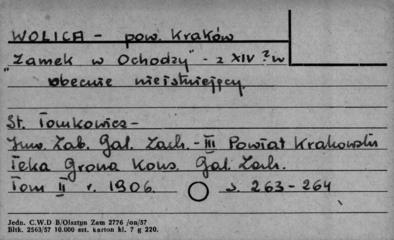 WOLICA - pow. Kraków
"Zamek w Ochodzy" - z XIV ? w
obecnie nieistniejący.
St. Tomkowicz -
Inw. Zab. Gal. Zach. - III Powiat Krakowski
Teka Grona Kons. Gal. Zach.
Tom II r. 1906. s. 263-264
Jedn. C.W.D B/Olsztyn Zam 2776 /on/57
Bltk. 2563/57 10.000 szt. karton kl. 7 g 220.